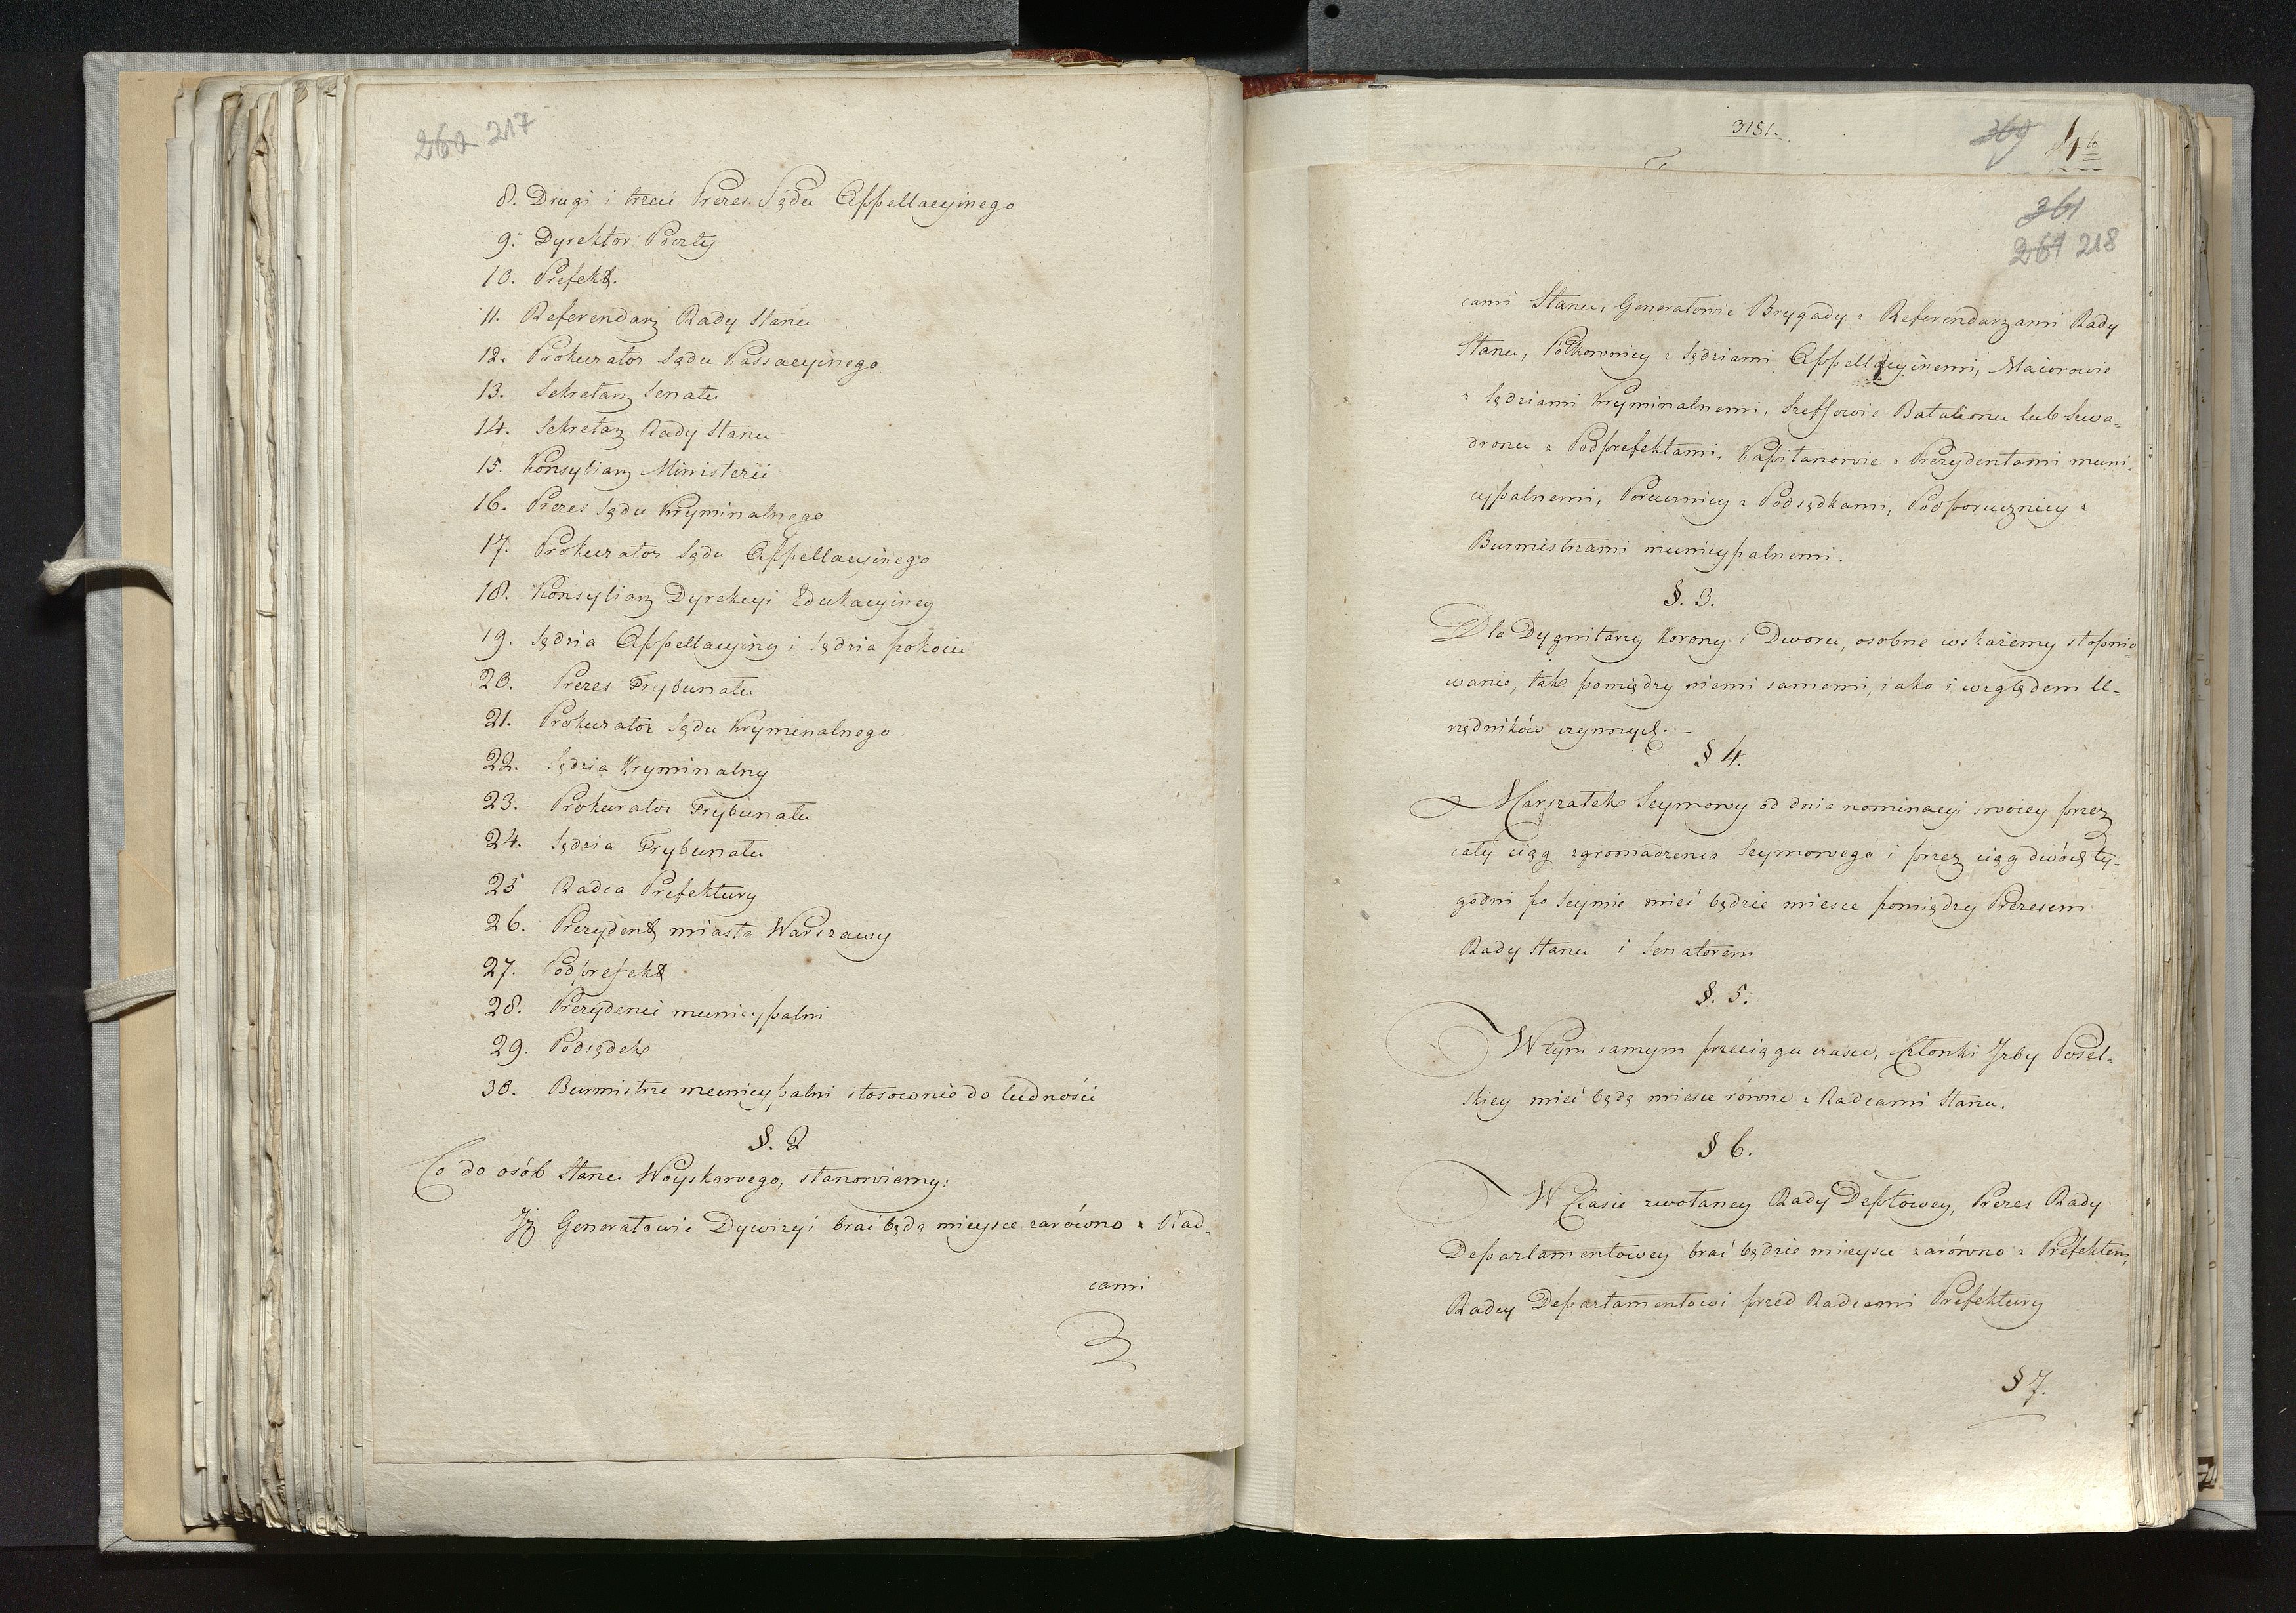 262 217
8. Drugi i trzeci Prezes Sądu Appellacyinego
9. Dyrektor Poczty
10. Prefekt.
11. Referendarz Rady Stanu
12. Prokurator Sądu Kassacyinego
13. Sekretarz Senatu
14. Sekretarz Rady Stanu
15. Konsyliarz Ministerii
16. Prezes Sądu Kryminalnego
17. Prokurator Sądu Appellacyinego
18. Konsyliarz Dyrekcyi Edukacyiney
19. Sędzia Appellacyiny i Sędzia pokoiu
20. Prezes Trybunału
21. Prokurator Sądu Kryminalnego
22. Sędzia Kryminalny
23. Prokurator Trybunału
24. Sędzia Trybunału
25 Radca Prefektury
26. Prezydent miasta Warszawy
27. Podprefekt
28. Prezydenci municypalni
29. Podsędek
30. Burmistrze municypalni stosownie do ludności
§. 2
Co do osób Stanu Woyskowego, stanowiemy:
Jż Generałowie Dywizyi brać będą mieysce zarówno z Rad-
cami
3151.
369
361
264 218
cami Stanu, Generałowie Brygady z Referendarzami Rady
Stanu, Półkownicy z Sędziami Appellacyinemi, Maiorowie
z Sędziami Kryminalnemi, Szeffowie Batalionu lub Szwa-
dronu z Podprefektami, Kapitanowie z Prezydentami muni-
cypalnemi, Porucznicy z Podsędkami, Podporucznicy z
Burmistrzami municypalnemi.
§. 3.
Dla Dygnitarzy Korony i Dworu, osobne wskażemy stopnio-
wanie, tak pomiędzy niemi samemi, iako i względem U-
rzędników czynnych. -
§ 4.
Marszałek Seymowy od dnia nominacyi swoiey przez
cały ciąg zgromadzenia Seymowego i przez ciąg dwóch ty-
godni po Seymie mieć będzie miesce pomiędzy Prezesem
Rady Stanu i Senatorem
§. 5.
W tym samym przeciągu czasu, Członki Jzby Posel-
skiey mieć będą miesce równe z Radcami Stanu.
§ 6.
W Czasie zwołaney Rady Deptowey, Prezes Rady
Departamentowey brać będzie mieysce zarówno z Prefektem,
Radcy Departamentowi przed Radcami Prefektury
§ 7.